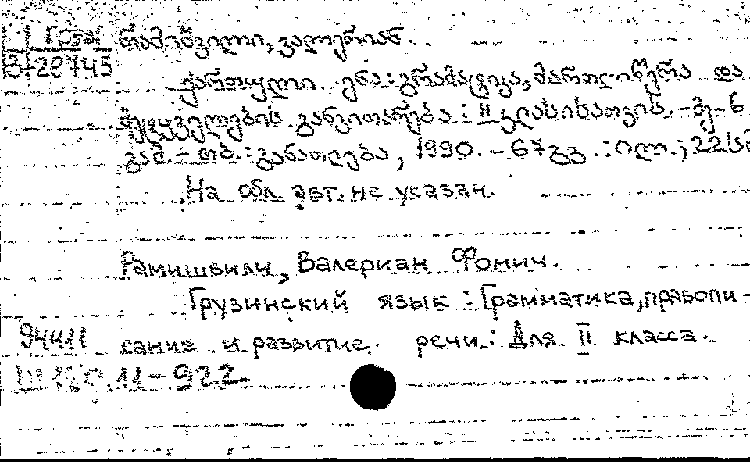 რამიშვილი, ვალერიან.
3/28745 ქართული ენა: გრამატიკა, მართლწერა და
მეტყველების განვითარება: II კლასისათვის. - მე-6
გამ. - თბ.: განათლება, 1990. - 67გვ.: ილ.; 22სმ
На обл. авт. не указан.
Рамишвили, Валериан Фонич.
Грузинский язык: Грамматика, правопи-
94411 сание и развитие речи: Для II класса.
11-922